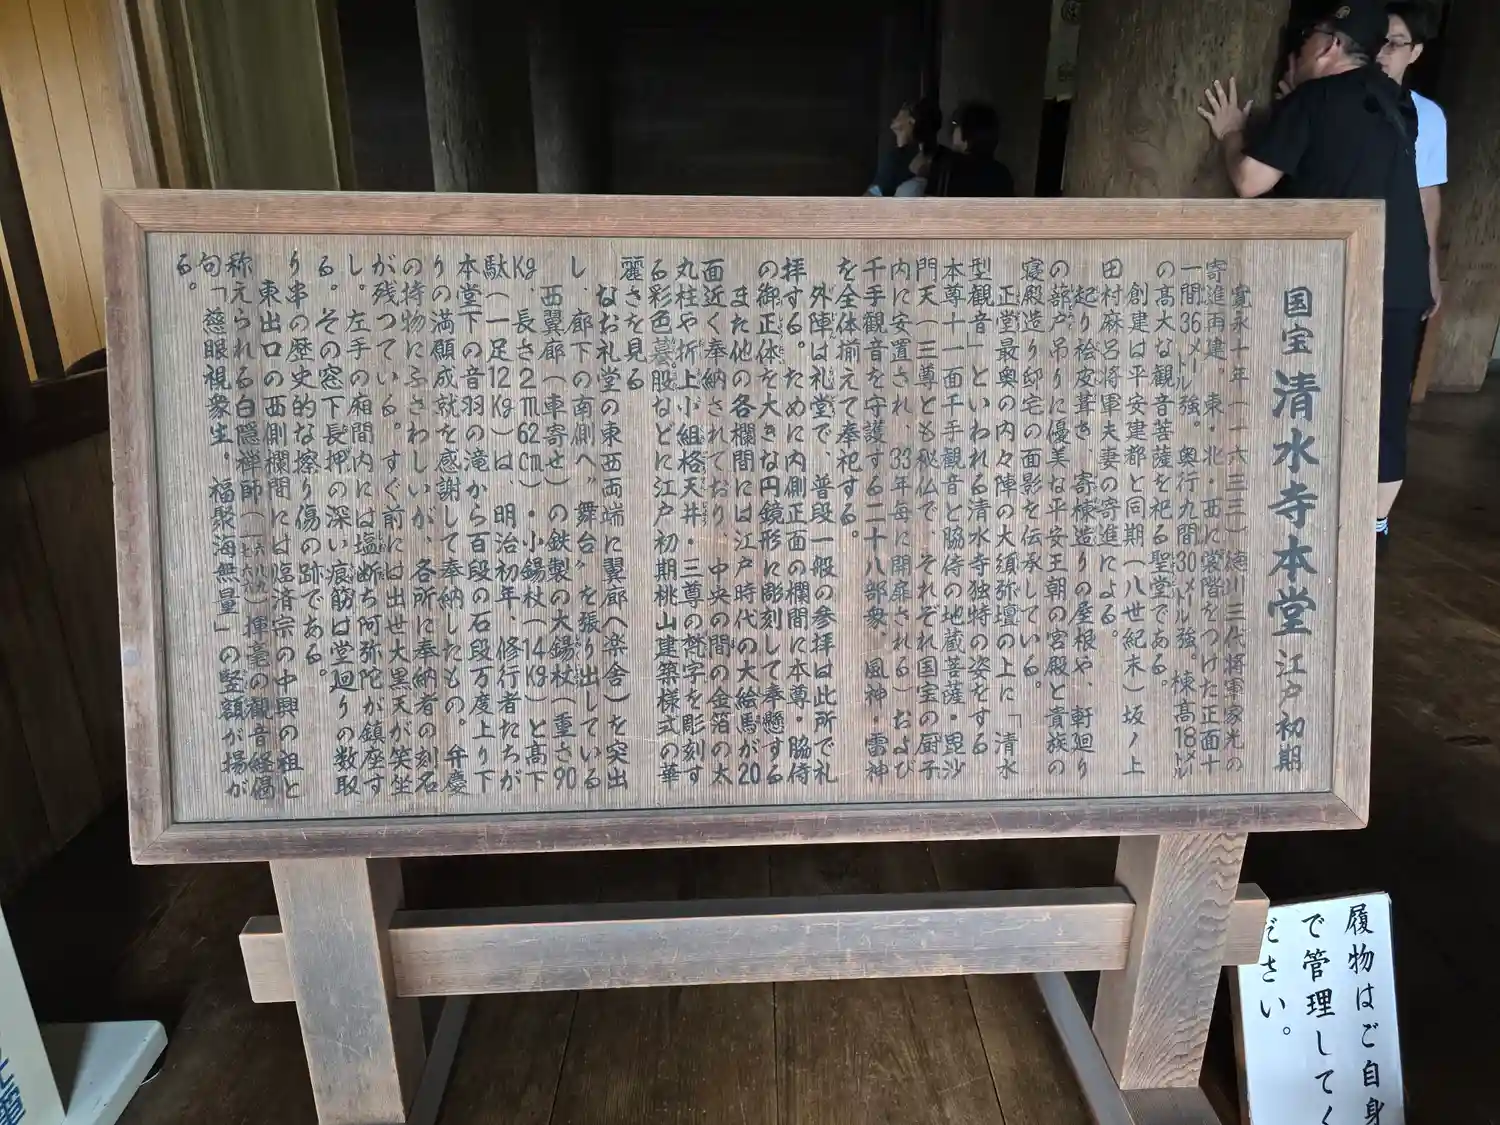 国宝 清水寺本堂 江戸初期
寛永十年(一六三三)徳川三代将軍家光の
寄進再建。東・北・西に裳階をつけた正面十
一間36メートル強。奥行九間30メートル強、棟高18メートル
の高大な観音菩薩を祀る聖堂である。
創建は平安建都と同期(八世紀末)坂ノ上
田村麻呂将軍夫妻の寄進による。
起り桧皮葺き、寄棟造りの屋根や、軒廻り
の蔀戸吊りに優美な平安王朝の宮殿と貴族の
寝殿造り邸宅の面影を伝承している。
正堂最奥の内々陣の大須弥壇の上に「清水
型観音」といわれる清水寺独特の姿をする
本尊十一面千手観音と脇侍の地蔵菩薩・毘沙
門天(三尊とも秘仏で、それぞれ国宝の厨子
内に安置され、33年毎に開扉される)および
千手観音を守護する二十八部衆、風神・雷神
を全体揃えて奉祀する。
外陣は礼堂で、普段一般の参拝は此所で礼
拝する。ために内側正面の欄間に本尊・脇侍
の御正体を大きな円鏡形に彫刻して奉懸する
また他の各欄間には江戸時代の大絵馬が20
面近く奉納されており、中央の間の金箔の太
丸柱や折上小組格天井・三尊の梵字を彫刻す
る彩色蟇股などに江戸初期桃山建築様式の華
麗さを見る
なお礼堂の東西両端に翼廊(楽舎)を突出
し、廊下の南側へ“舞台”を張り出している
西翼廊(車寄せ)の鉄製の大錫杖(重さ90
Kg、長さ2m62cm)・小錫杖(14Kg)と高下
駄(一足12Kg)は、明治初年、修行者たちが
本堂下の音羽の滝から百段の石段万度上り下
りの満願成就を感謝して奉納したもの。弁慶
の持物にふさわしいが、各所に奉納者の刻名
が残っている。すぐ前には出世大黒天が笑坐
し。左手の廂間内には塩断ち阿弥陀が鎮座す
る。その窓下長押の深い痕筋は堂廻りの数取
り串の歴史的な擦り傷の跡である。
東出口の西側欄間には臨済宗の中興の祖と
称えられる白隠禅師(一六八五|一七六八)揮毫の観音経偈
句「慈眼視衆生。福聚海無量」の竪額が揚が
る。
履物はご自身
で管理してく
ださい。